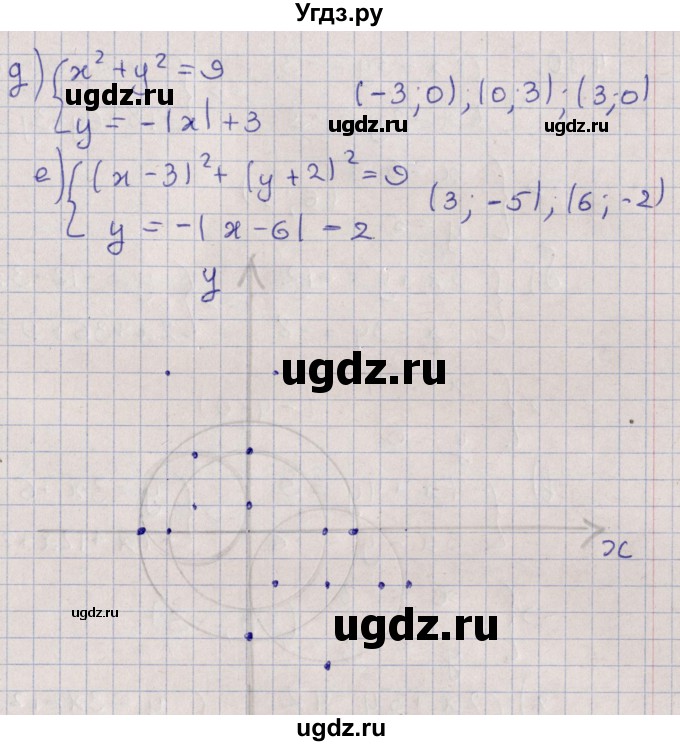 Угдз.ру
д) { x² + y² = 9
y = -|x| + 3
(-3; 0); (0; 3); (3; 0)
ugdz.ru
ugdz.ru
ugdz.ru
е) { (x - 3)² + (y + 2)² = 9
y = -|x - 6| - 2
(3; -5); (6; -2)
y
ugdz.ru
x
ugdz.ru
ugdz.ru
ugdz.ru